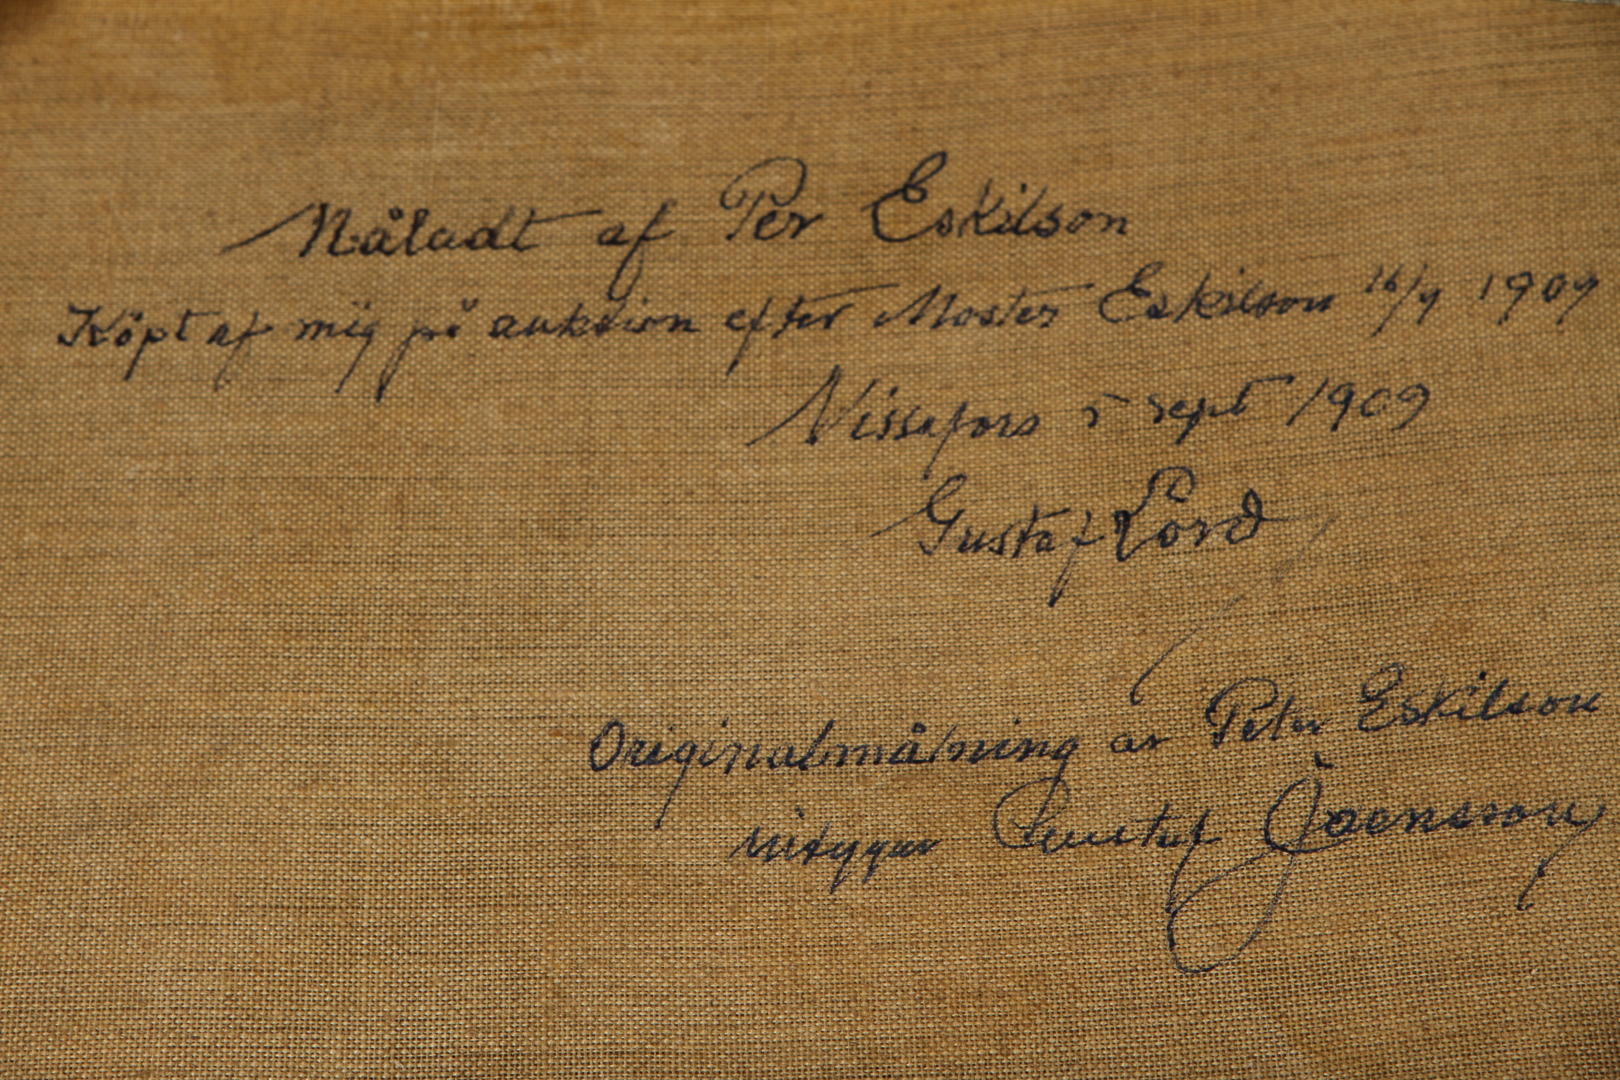 Måladt af Per Eskilson
Köpt af mig på auktion efter Moster Eskilson 16/4 1909
Nissafors 5 sept 1909
Gustaf Lord
Originalmålning av Peter Eskilson
intygar Gustaf Joensson